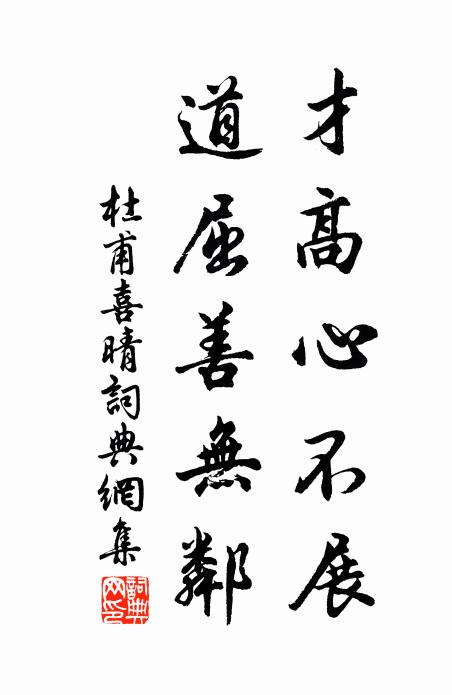 才高心不展
道屈善無鄰
杜甫喜晴詞典網集
詞典网印